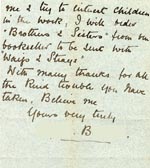 me & try to interest children
in the work, I will order
"Brothers & Sisters" from our
bookseller to be sent with
"Waifs & Strays"
With many thanks for all
the kind trouble you have
taken, Believe me
Yours very truly
B